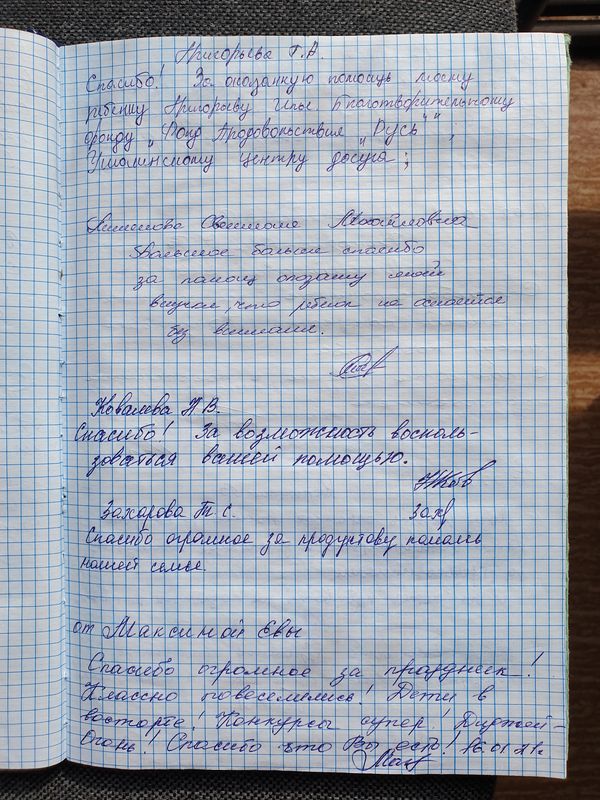 Григорьева Г.А.
Спасибо! За оказанную помощь моему
ребенку Григорьеву Илье Благотворительному
фонду „Фонд Продовольствия „Русь"",
центру досуга;
Светлана Михайловна
Большое больше спасибо
за помощ оказану моей
внучки, что ребенок не остается
без внимания.
Ковалева Н В.
Спасибо! За возможность восполь-
зоваться вашей помощью.
Захарова Т. С. Зах
Спасибо огромное за продуктову помощь
нашей семье.
от Максиной Евы
Спасибо огромное за праздник!
Классно повеселились! Дети в
восторге! Конкурсы супер! Диджей-
Огонь! Спасибо что Вы есть! 16.01.21г.